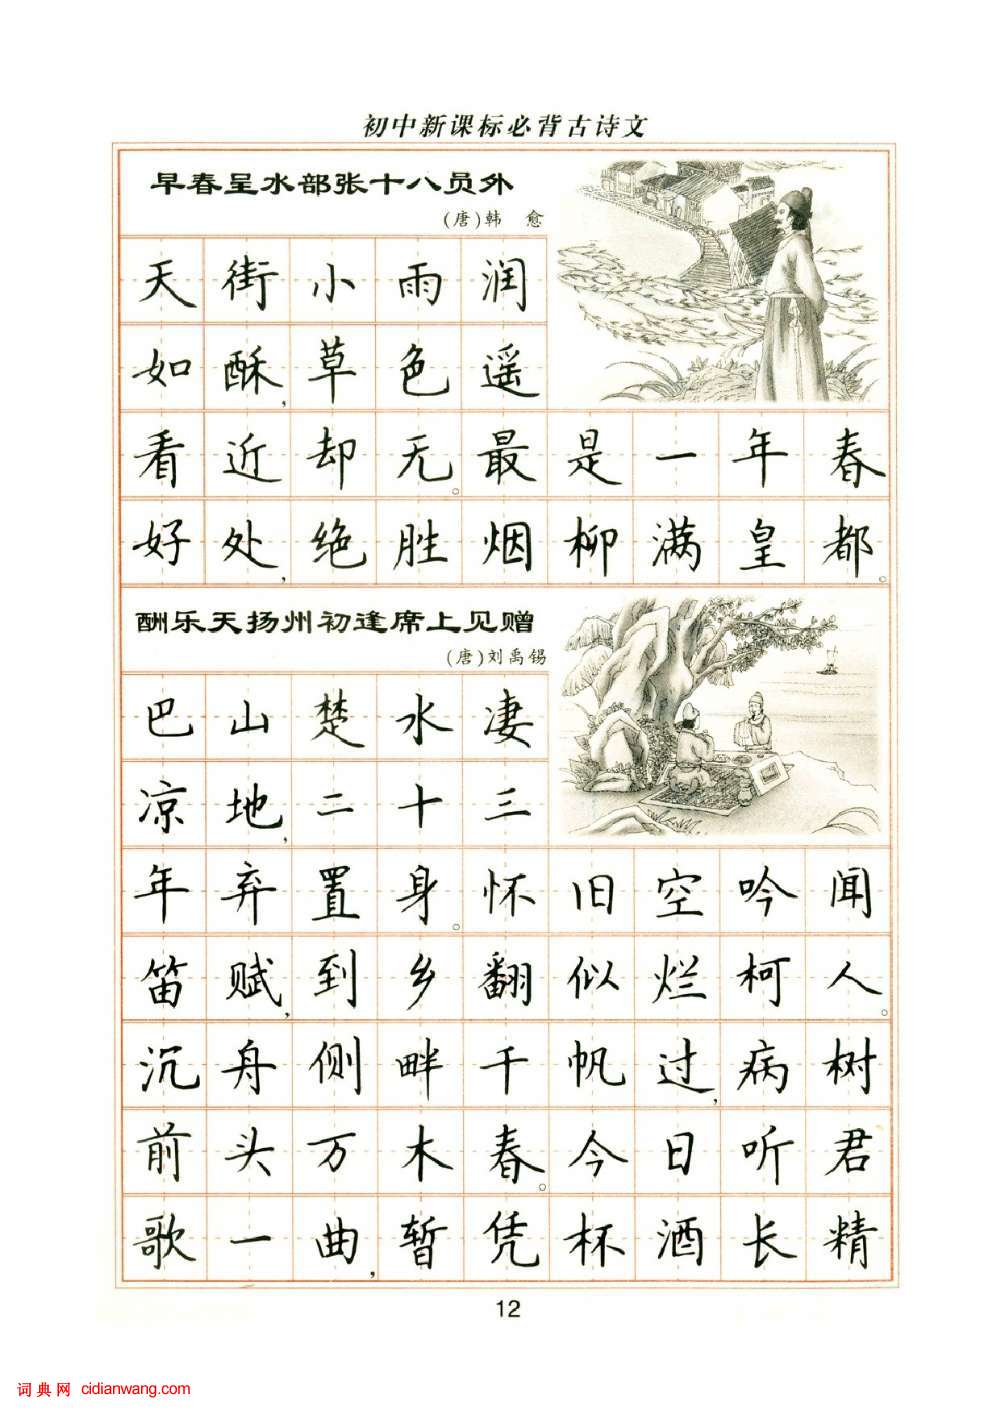 初中新课标必背古诗文
早春呈水部张十八员外
(唐)韩 愈
天街小雨润
如酥,草色遥
看近却无。最是一年春
好处,绝胜烟柳满皇都。
酬乐天扬州初逢席上见赠
(唐)刘禹锡
巴山楚水凄
凉地,二十三
年弃置身。怀旧空吟闻
笛赋,到乡翻似烂柯人。
沉舟侧畔千帆过,病树
前头万木春。今日听君
歌一曲,暂凭杯酒长精
12
词典网 cidianwang.com